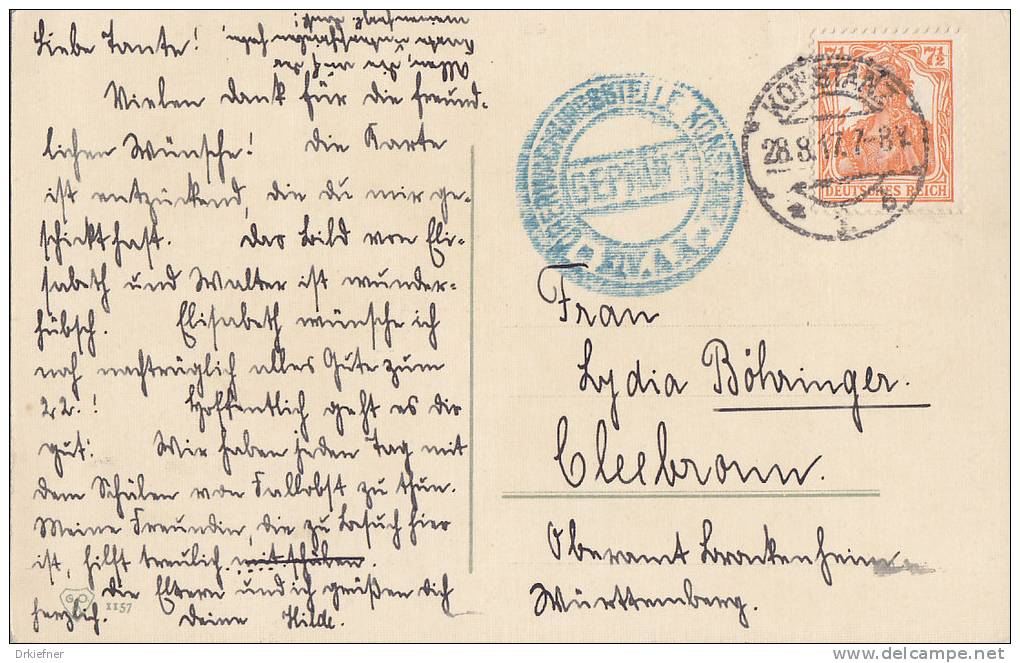 Liebe Tante!
Vielen Dank für die freund-
lichen Wünsche! Die Karte
ist entzückend, die du mir ge-
schickt hast. Das Bild von Eli-
sabeth und Walter ist wunder-
hübsch. Elisabeth wünsche ich
noch nachträglich alles Gute zum
22.! Hoffentlich geht es dir
gut! Wir haben jeden Tag mit
dem Schälen von Fallobst zu thun.
Meine Freundin, die zu Besuch hier
ist, hilft treulich
Die Eltern und ich grüßen dich
herzlich. Deine Hilde.
KONSTANZ
28.8.17. 7-8V.
7½ 7½
DEUTSCHES REICH
ÜBERWACHUNGSSTELLE KONSTANZ
GEPRÜFT
XIV. A.K.
Frau
Lydia Böhringer.
Cleebronn.
Oberamt Brackenheim
Württemberg.
G.O.
1157
Drkiefner
delcampe.net